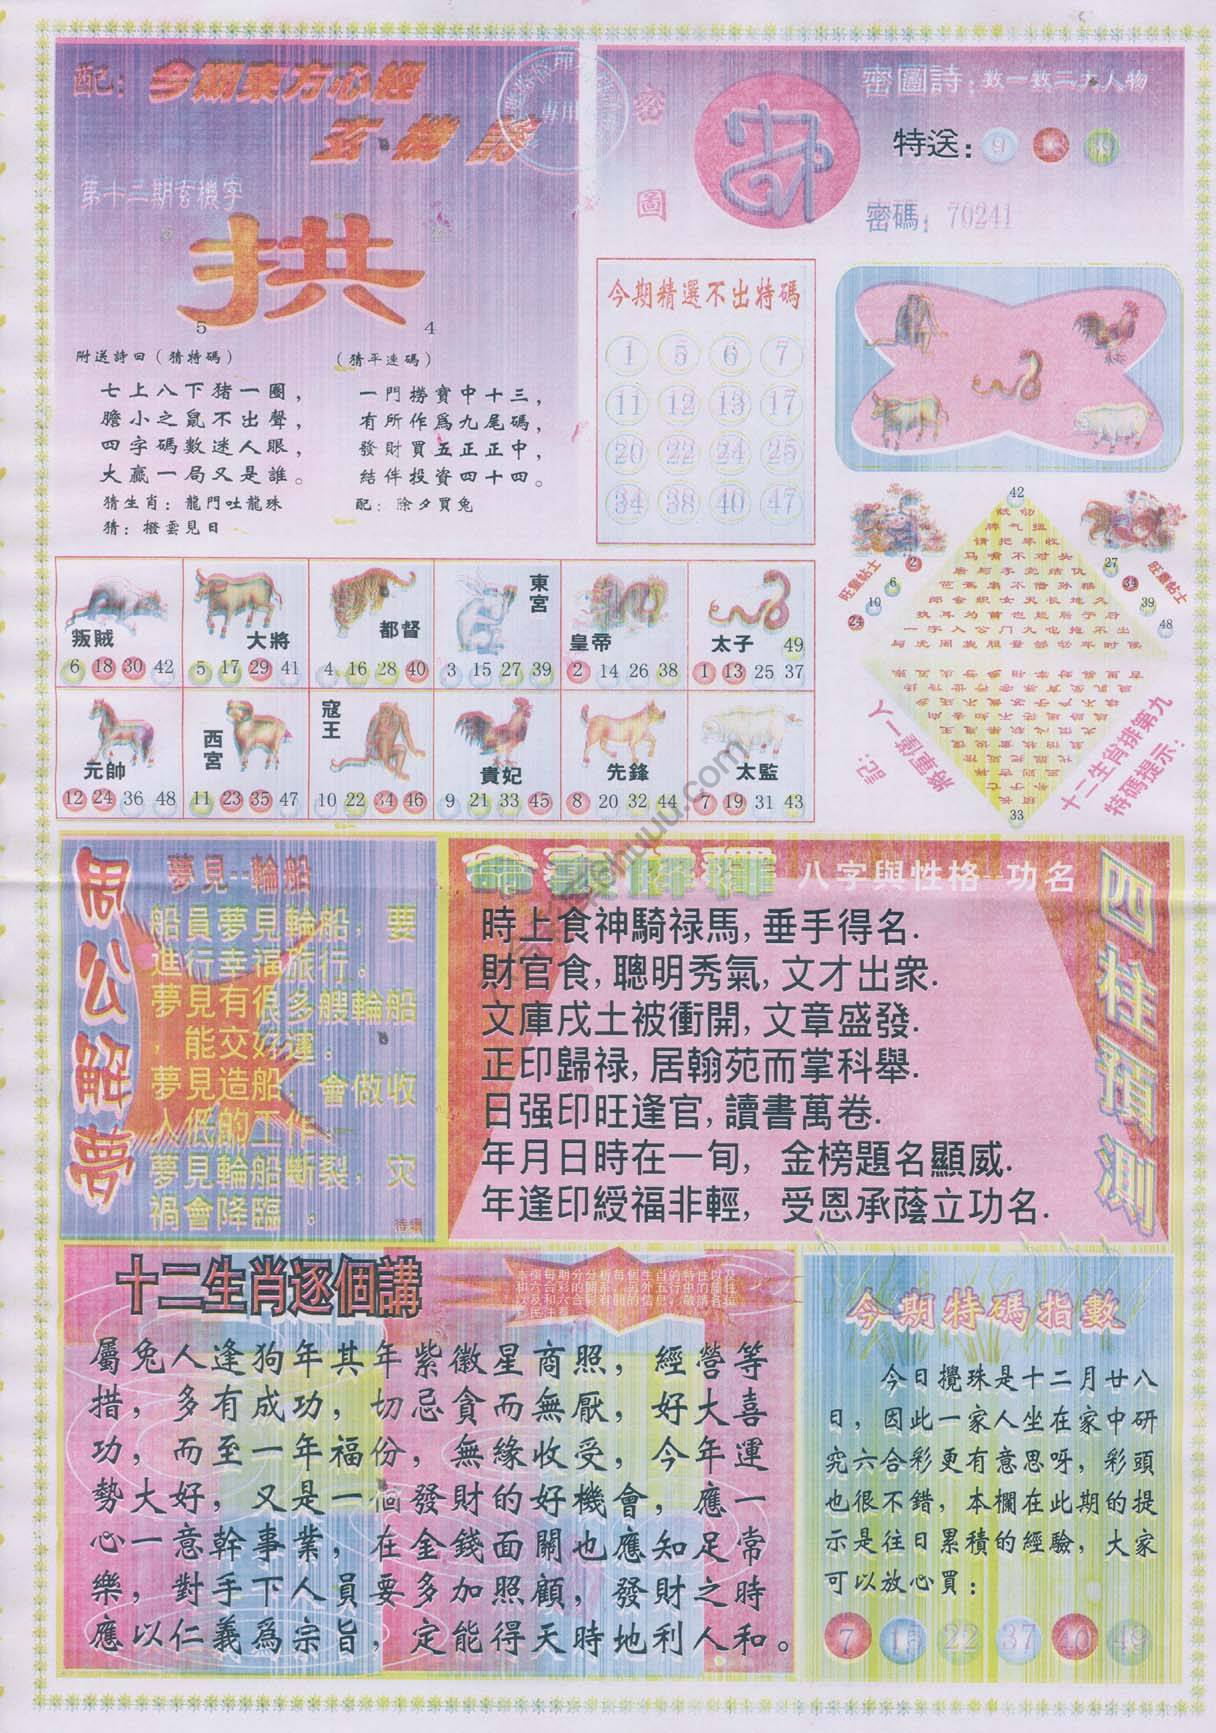 配：今期東方心經
玄機詩
第十三期玄機字
拱
5
4
附送詩曰（猜特碼）
七上八下猪一圈，
膽小之鼠不出聲，
四字碼數迷人眼，
大贏一局又是誰。
猜生肖：龍門吐龍珠
猜：撥雲見日
（猜平連碼）
一門撈寶中十三，
有所作爲九尾碼，
發財買五正正中，
結伴投資四十四。
配：除夕買兔
密圖
密圖詩：數一數二大人物
特送：9
密碼：70241
今期精選不出特碼
1 5 6 7
11 12 13 17
20 22 24 25
34 38 40 47
42
旺童帖士
2
6
10
24
27
34
39
48
旺童帖士
马嘴不对头
芭蕉扇不借孙猴
一字入公门九屯拖不出
33
十二生肖排第九
特碼提示：
叛賊
6 18 30 42
大將
5 17 29 41
都督
4 16 28 40
東宮
3 15 27 39
皇帝
2 14 26 38
太子
49
1 13 25 37
元帥
12 24 36 48
西宮
11 23 35 47
寇王
10 22 34 46
貴妃
9 21 33 45
先鋒
8 20 32 44
太監
7 19 31 43
周公解夢
夢見--輪船
船員夢見輪船，要
進行幸福旅行。
夢見有很多艘輪船
，能交好運。
夢見造船，會做收
入低的工作。
夢見輪船斷裂，灾
禍會降臨。
待續
八字與性格--功名
四柱預測
時上食神騎禄馬,垂手得名.
財官食,聰明秀氣,文才出衆.
文庫戌土被衝開,文章盛發.
正印歸禄,居翰苑而掌科舉.
日强印旺逢官,讀書萬卷.
年月日時在一旬,金榜題名顯威.
年逢印綬福非輕,受恩承蔭立功名.
十二生肖逐個講
屬兔人逢狗年其年紫微星商照，經營等
措，多有成功，切忌貪而無厭，好大喜
功，而至一年福份，無緣收受，今年運
勢大好，又是一個發財的好機會，應一
心一意幹事業，在金錢面關也應知足常
樂，對手下人員要多加照顧，發財之時
應以仁義爲宗旨，定能得天時地利人和。
今期特碼指數
今日攪珠是十二月廿八
日，因此一家人坐在家中研
究六合彩更有意思呀，彩頭
也很不錯，本欄在此期的提
示是往日累積的經驗，大家
可以放心買：
7 15 22 37 40 49